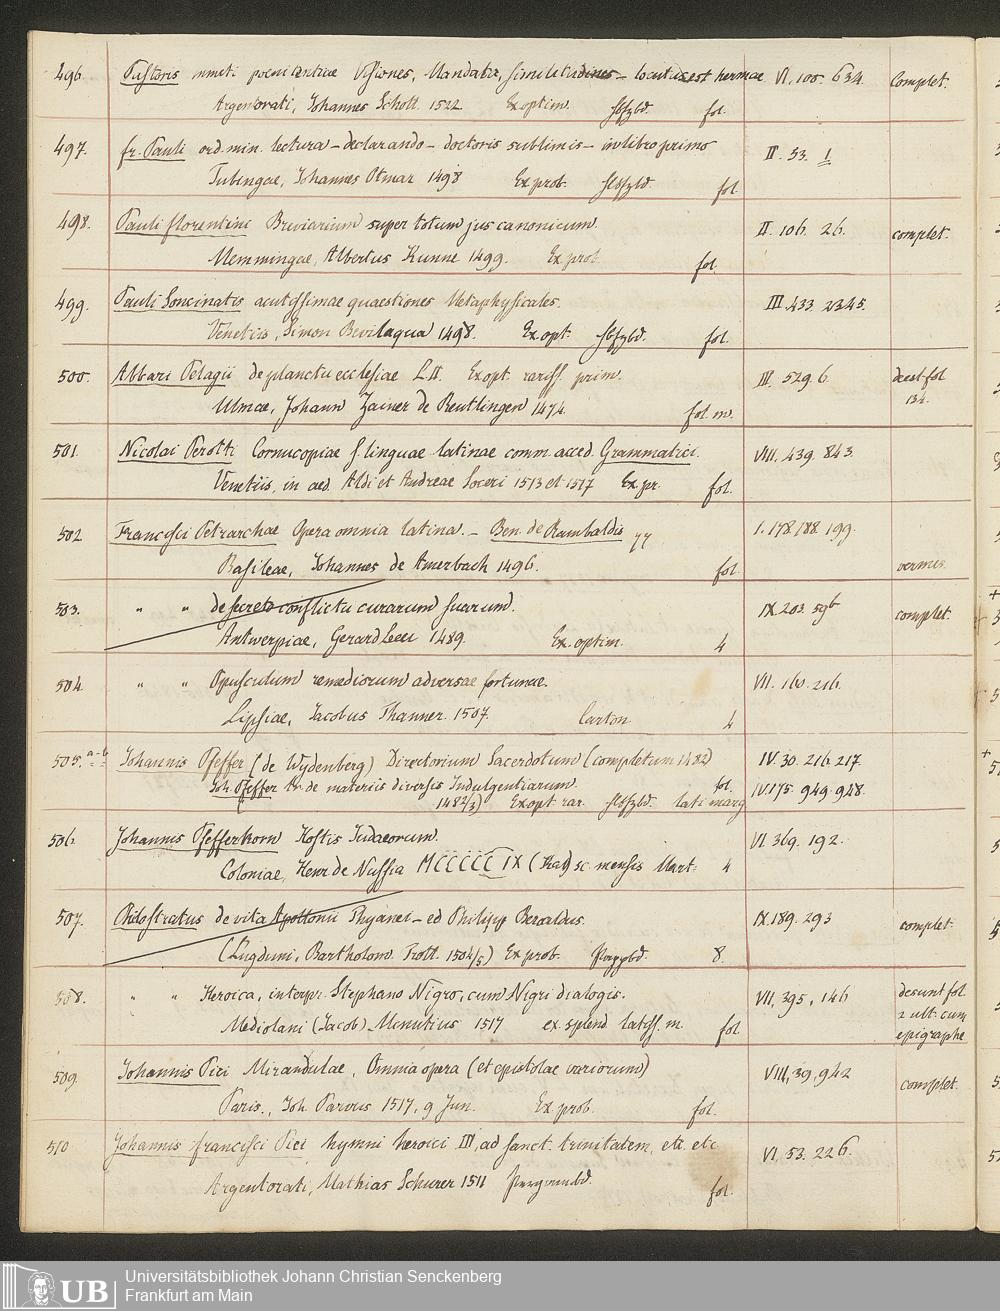 496. Pastoris nuncii poenitentiae Visiones, Mandata, similitudines – locutus est hermae VI. 105. 634. Complet.
Argentorati, Johannes Schott. 1522 Ex optim. fol.
497. fr. Pauli ord. min. lectura – declarando – doctoris sublimis – in libro primo II. 53. 1
Tubingae, Johannes Otmar 1498 Ex prob. fol.
498. Pauli florentini Breviarium super totum jus canonicum. II. 106. 26. complet.
Memmingae, Albertus Kunne 1499. Ex prob. fol.
499. Pauli Soncinatis acutissimae quaestiones Metaphysicales. III. 433. 2345.
Venetiis, Simon Bevilaqua 1498. Ex opt. fol.
500. Alvari Pelagii de planctu ecclesiae L. II. Ex opt. rariss. prim. III. 529. 6. deest fol
134.
Ulmae, Johann Zainer de Reutlingen 1474. fol. m.
501. Nicolai Perotti Cornucopiae s. linguae latinae comm. acced. Grammatici. VIII. 439. 843.
Venetiis, in aed. Aldi et Andreae Soceri 1513 et 1517 Ex pr. fol.
502 Francisci Petrarchae Opera omnia latina. – Ben. de Rambaldis I. 178. 188. 199.
Basileae, Johannes de Amerbach 1496. fol. vermis.
503. " " de secreto conflictu curarum suarum. IX. 203. 596 complet.
Antwerpiae, Gerard Leeu 1489. Ex. optim. 4
504. " " Opusculum remediorum adversae fortunae. VII. 160. 216.
Lipsiae, Jacobus Thanner. 1507. Carton 4
505. a-b Johannis Pfeffer (de Wydenberg) Directorium Sacerdotum (completum 1482) IV. 30. 216. 217.
Joh. Pfeffer tr. de materiis diversis Indulgentiarum. fol. IV. 175. 949. 948.
1482/3) Ex opt. rar. lati marg
506. Johannis Pfefferkorn Hostis Judaeorum. VI. 369. 192.
Coloniae, Henr de Nussia MCCCCCIX (Kal) sc. mensis Mart. 4
507. Philostratus de vita Apollonii Thyanei – ed Philipp Beroaldus. IX. 189. 293 complet.
(Lugduni, Bartholom. Trott. 1504/5) Ex prob. 8.
508. " " Heroica, interpr. Stephano Nigro, cum Nigri dialogis. VII, 395, 146 desunt fol.
2 ult. cum
Mediolani (Jacob) Minutius 1517 ex splend latiss. m. fol epigraphe
509. Johannis Pici Mirandulae, Omnia opera (et epistolae variorum) VIII, 39, 942 complet.
Paris., Joh. Parvus 1517, 9 Jun. Ex prob. fol.
510 Johannis francisci Pici hymni heroici III, ad sanct. trinitatem, etc. etc VI. 53. 226.
Argentorati, Mathias Schurer 1511 fol.
UB Universitätsbibliothek Johann Christian Senckenberg
Frankfurt am Main